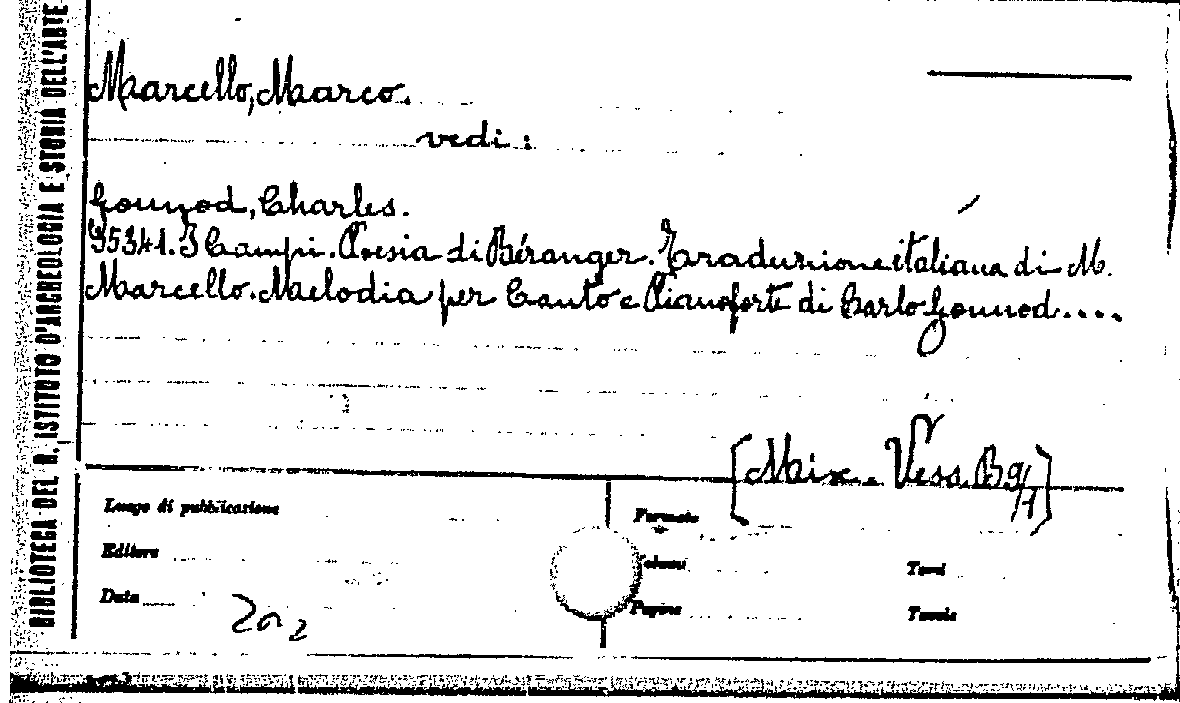 BIBLIOTECA DEL R. ISTITUTO D'ARCHEOLOGIA E STORIA DELL'ARTE
Marcello, Marco.
vedi:
Gounod, Charles.
95341. I Campi. Poesia di Béranger. Traduzione italiana di M.
Marcello. Melodia per Canto e Pianoforte di Carlo Gounod....
[Mix. Vess. B9/1]
Luogo di pubblicazione
Formato
Editore
Volumi
Tomi
Data
Pagine
Tavole